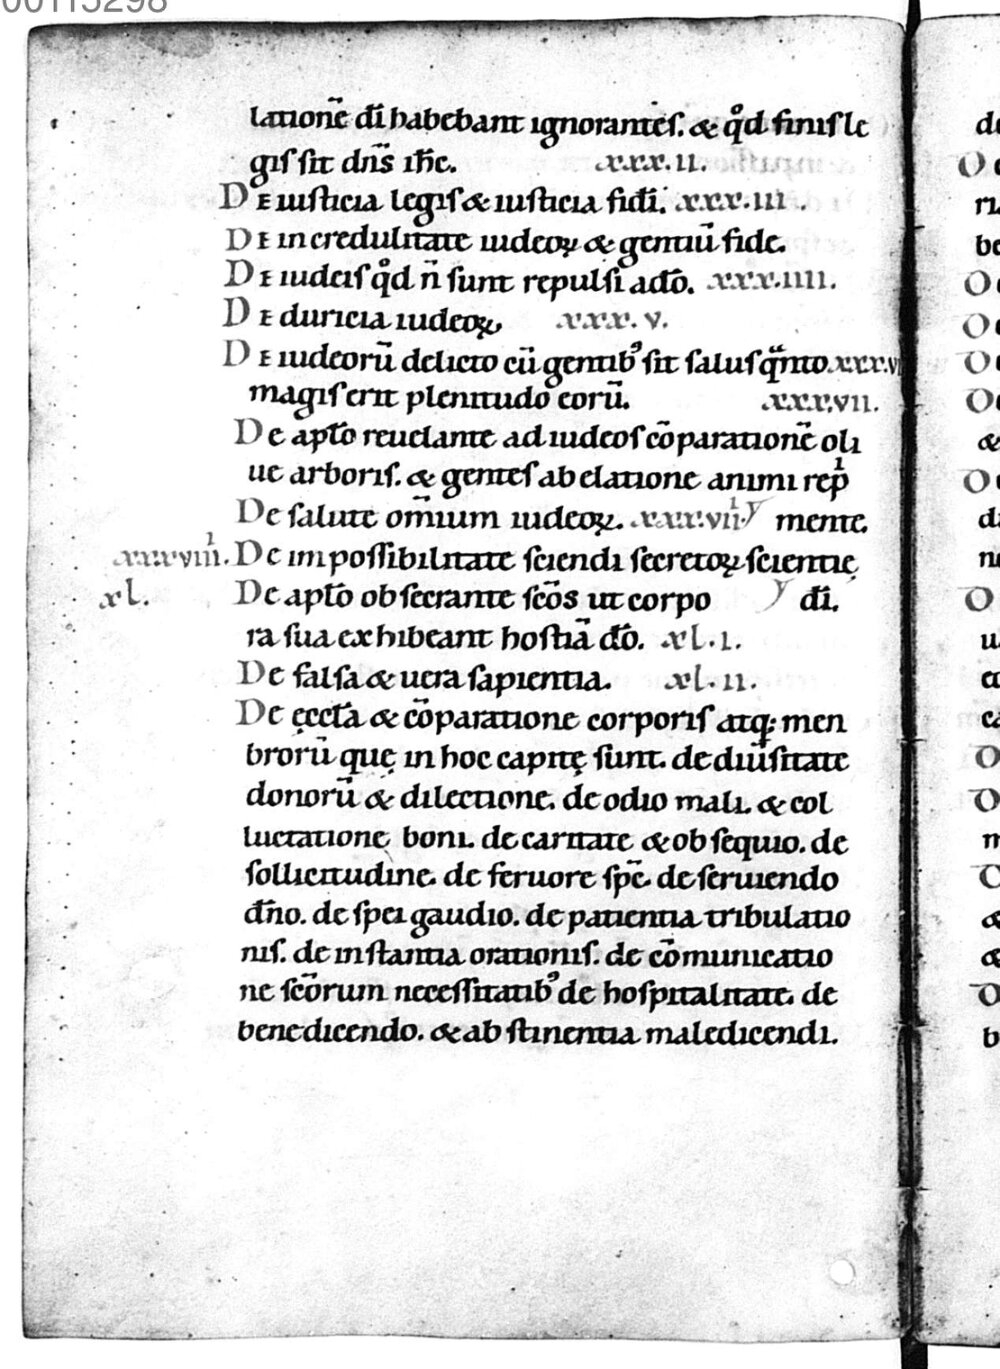 00115298
lationē dī habebant ignorantes. & qd̊ finis le
gis sit dn̄s ih̄c. xxx.ii.
De iusticia legis & iusticia fidi. xxx.iii.
De incredulitate iudeoꝝ & gentiū fide.
De iudeis qd̊ n̄ sunt repulsi a dō. xxx.iiii.
De duricia iudeoꝝ xxx.v.
De iudeorū delicto cū gentibꝰ sit salus qᵃnto xxx.v
magis erit plenitudo eorū. xxx.vii.
De apto reuelante ad iudeos cōparationē oli
ue arboris. & gentes ab elatione animi rep
De salute om̄ium iudeoꝝ. xxx.vii mente.
xxxviiii. De impossibilitate sciendi secretoꝝ scientię
xl. De apto obsecrante sc̄os ut corpo dī.
ra sua exhibeant hostiā dō. xl.i.
De falsa & uera sapientia. xl.ii.
De ęccta & cōparatione corporis atq; men
brorū quę in hoc capitę sunt. de diūsitate
donorū & dilectione. de odio mali. & col
luctatione boni. de caritate & obsequio. de
sollicitudine. de feruore sp̄c. de seruiendo
dn̄o. de spei gaudio. de patientia tribulatio
nis. de instantia orationis. de cōmunicatio
ne sc̄orum necessitatibꝰ de hospitalitate. de
benedicendo. & abstinentia maledicendi.